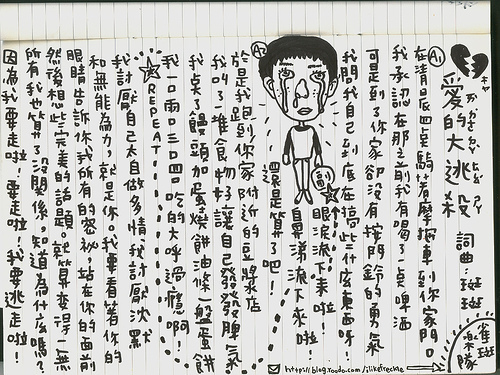 愛的大逃殺
詞曲:斑斑
A1 在清晨四點騎著摩托車到你家門口
我承認在那之前我有喝了一點啤酒
可是到了你家卻沒有按門鈴的勇氣
我問我自己到底在搞些什麼東西呀!
眼淚流下來啦!
鼻涕流下來啦!
還是算了吧!
A2 於是我跑到你家附近的豆漿店
我叫了一堆食物好讓自己發發脾氣
我點了饅頭加蛋燒餅油條一盤蛋餅
我一口兩口三口四口吃的大呼過癮啊!
REPEAT
我討厭自己太自做多情我討厭沈默
和無能為力,就是你。我要看著你的
眼睛告訴你我所有的祕密,站在你的面前
然後想些完美的話題。就算變得一無
所有我也算了沒關係,知道為什麼嗎?
因為我要走啦!要走啦!我要逃走啦!
雀斑樂隊
http://blog.roodo.com/ilikefreckle